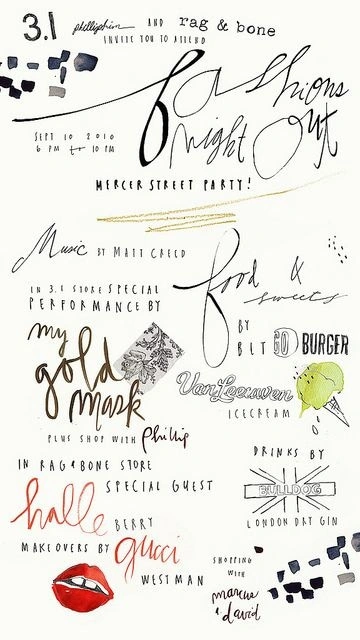 3.1 phillip lim AND rag & bone
INVITE YOU TO ATTEND
fashions
night out
SEPT 10 2010
6 PM to 10 PM
MERCER STREET PARTY!
Music BY MATT CREED
food &
sweets
IN 3.1 STORE SPECIAL
PERFORMANCE BY
my
gold
mask
BY
BLT GO BURGER
VanLeeuwen
ICECREAM
PLUS SHOP WITH phillip
IN RAG & BONE STORE
SPECIAL GUEST
halle BERRY
MAKEOVERS BY gucci
WESTMAN
DRINKS BY
BULLDOG
LONDON DRY GIN
SHOPPING
WITH
marcus
& david